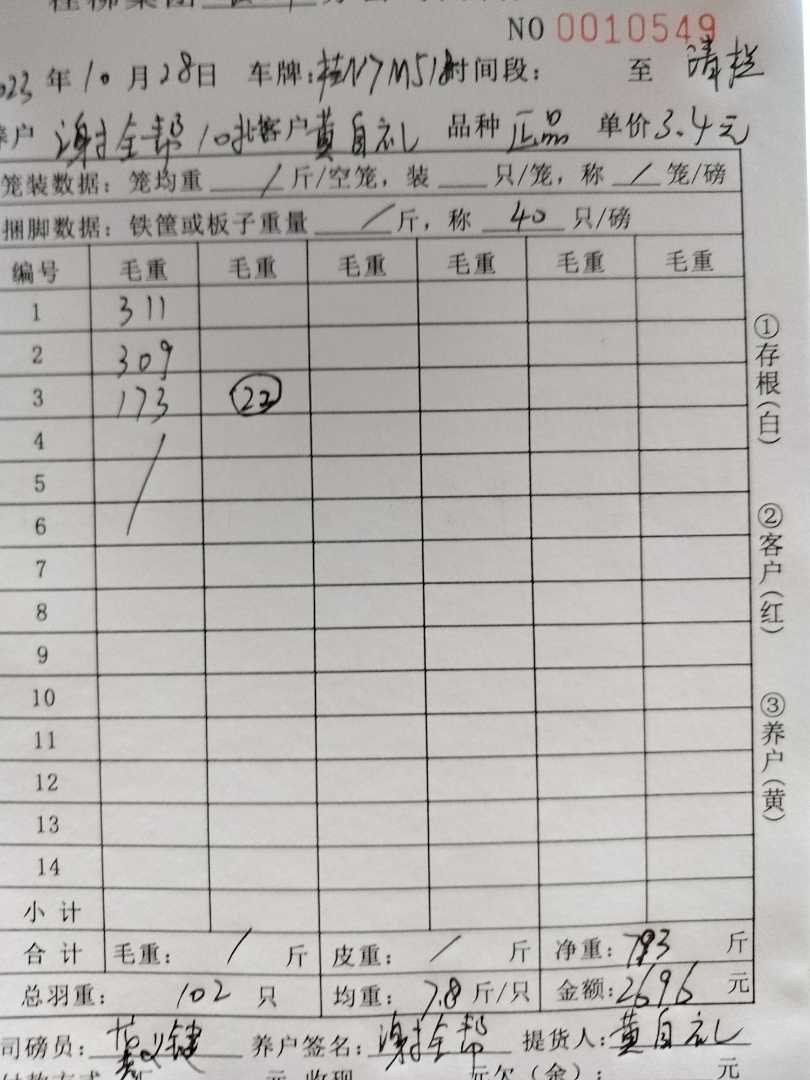 桂柳集团
NO 0010549
023年10月28日 车牌:桂N7M518 时间段: 至 清栏
养户 谢全帮 10批 客户 黄自礼 品种 正品 单价 3.4元
笼装数据: 笼均重 / 斤/空笼, 装 只/笼, 称 / 笼/磅
捆脚数据: 铁筐或板子重量 / 斤, 称 40 只/磅
编号 毛重 毛重 毛重 毛重 毛重 毛重
1 311
2 309
3 173 22
4 /
5
6
7
8
9
10
11
12
13
14
小计
合计 毛重: / 斤 皮重: / 斤 净重: 793 斤
总羽重: 102 只 均重: 7.8 斤/只 金额: 2696 元
司磅员: 养户签名: 谢全帮 提货人: 黄自礼
付款方式 元 收现 元欠(金): 元
①存根(白)
②客户(红)
③养户(黄)